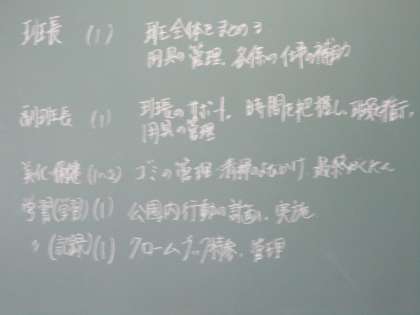 班長 (1) 班全体をまとめる
用具の管理、各係の仕事の補助
副班長 (1) 班長のサポート、時間を把握し
用具の管理
美化・保健 (1~2) ゴミの管理
学習(学習) (1) 公園内行動の計画、実施
〃 (記録) (1) クロームブック 管理